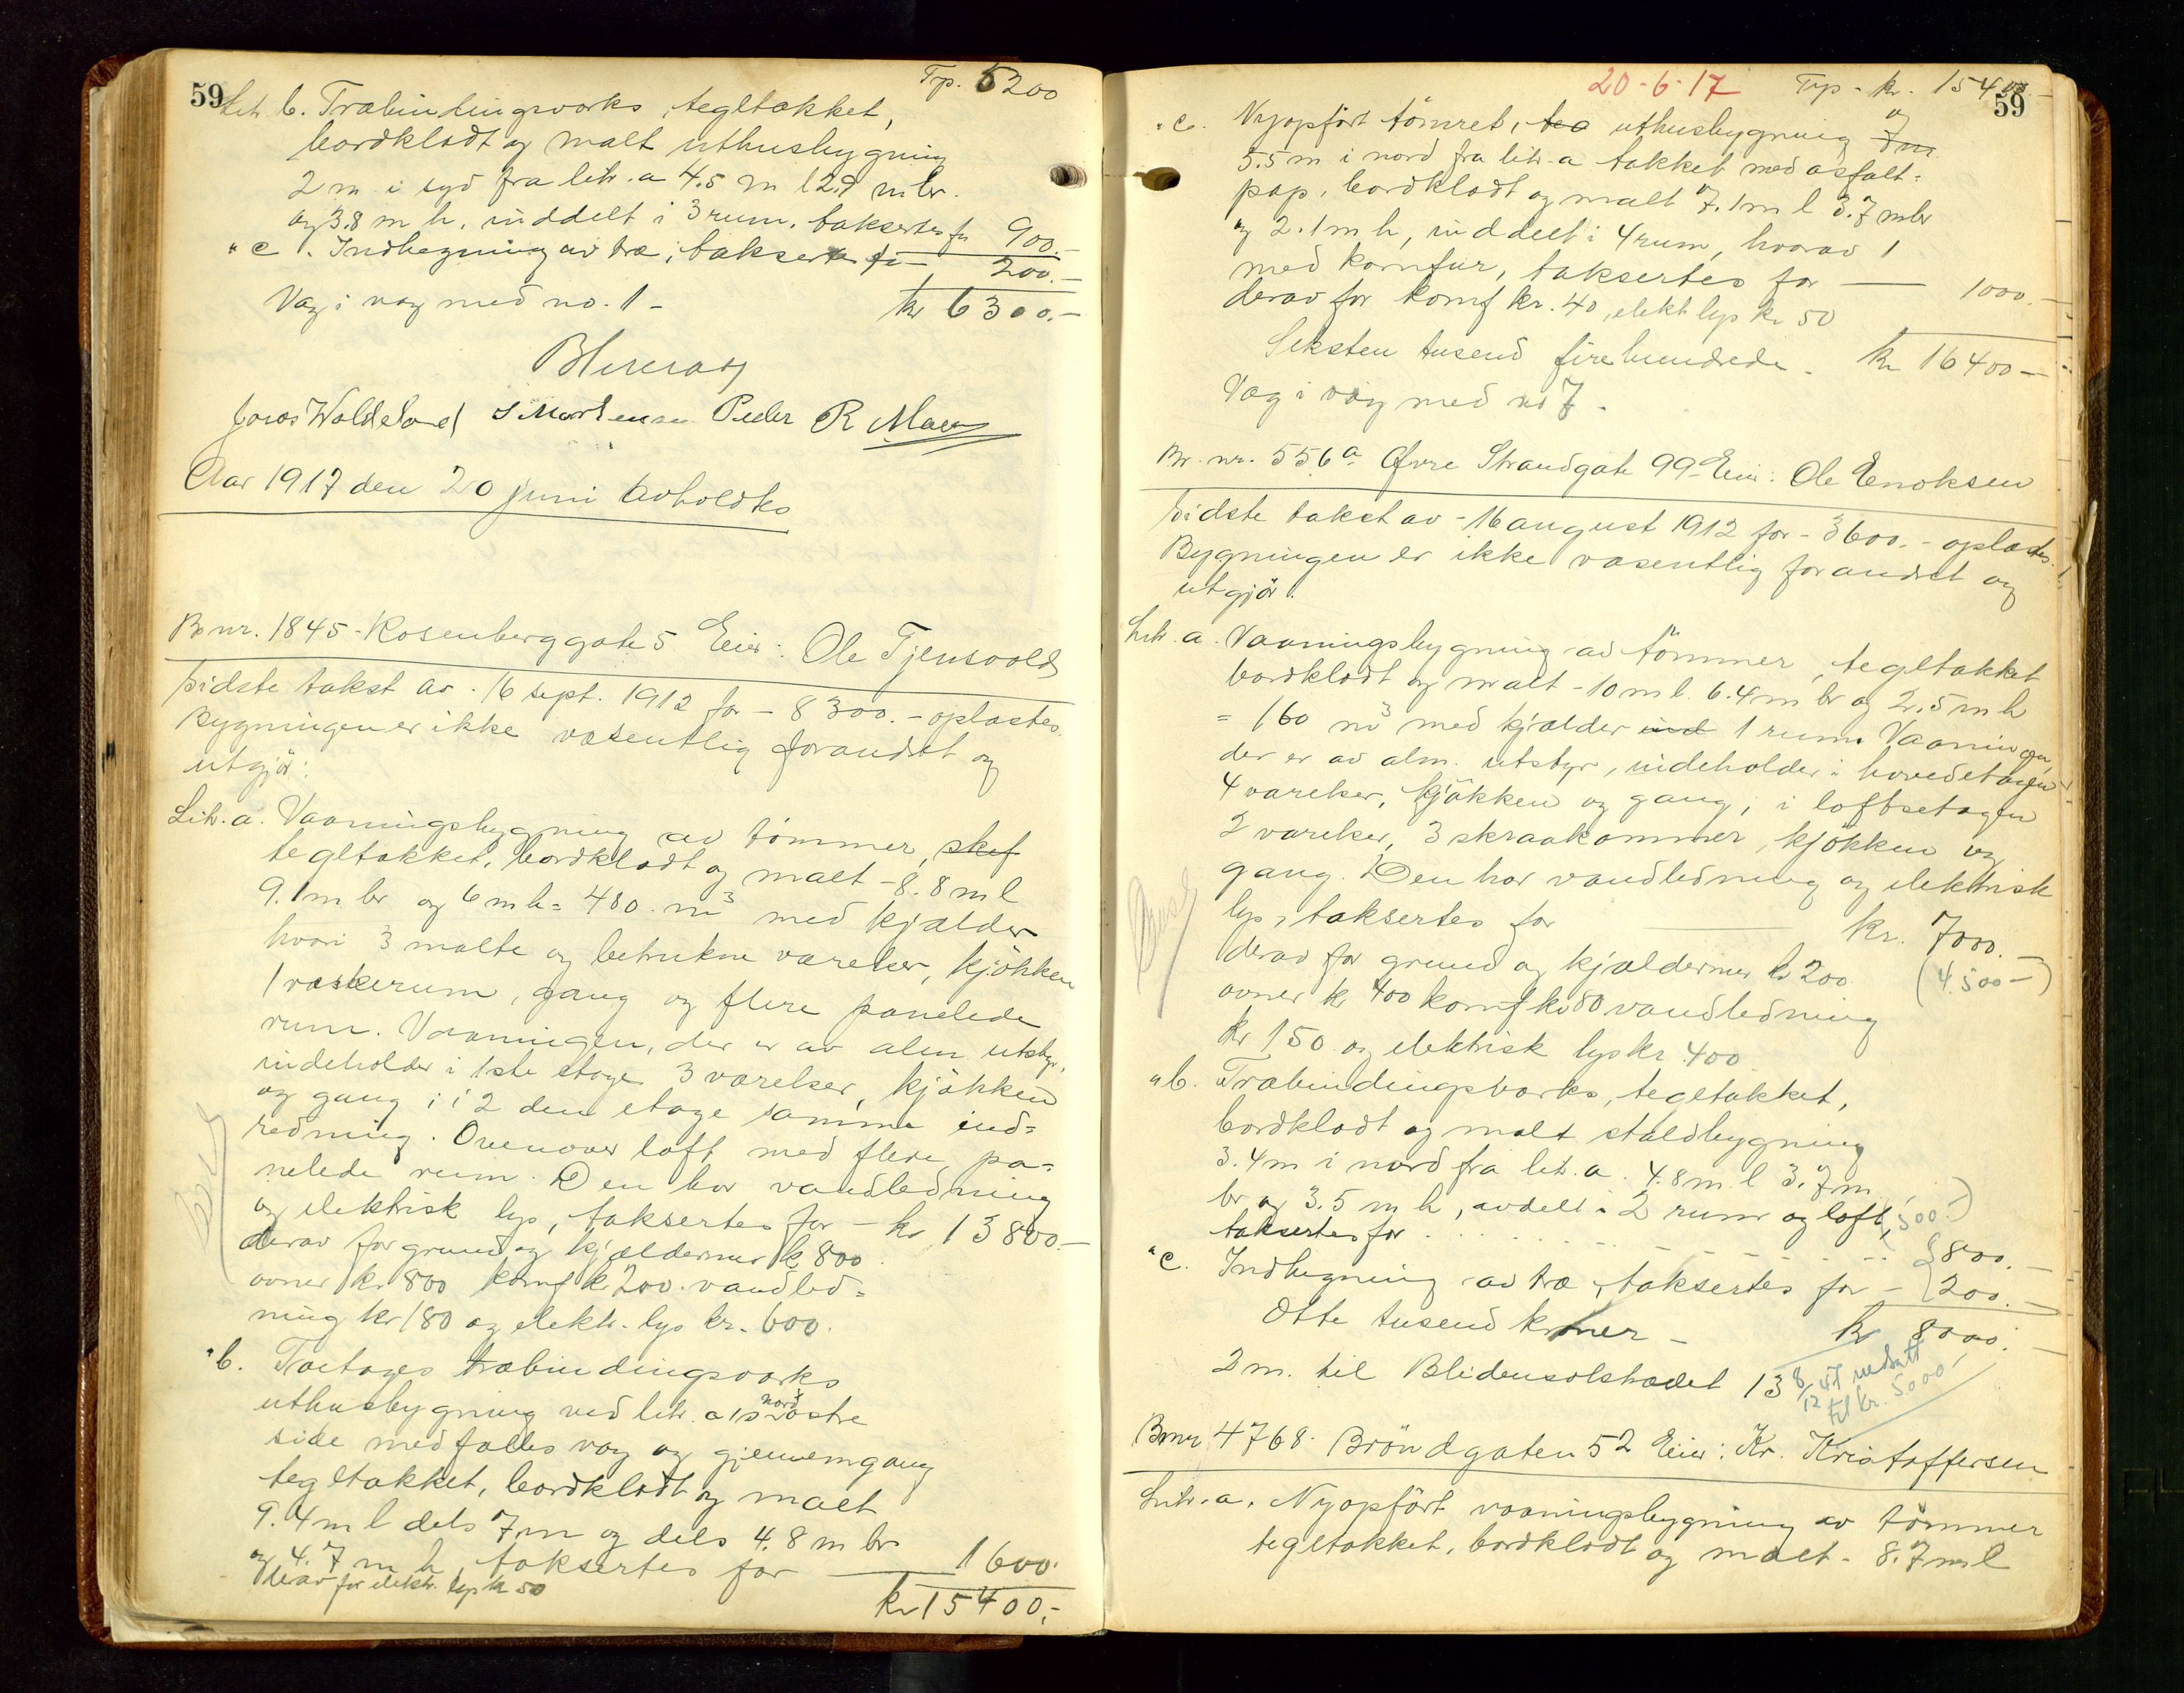 59
Trp. 5200
Litr. b. Træbindingsverks, tegltækket,
bordklædt og malt uthusbygning
2 m i syd fra litr. a 4.5 m l 2.9 m br.
og 3.8 m h. inddelt i 3 rum, takseres for 900.-
" c. Indhegning av træ, takseres for - 200.-
Væg i væg med no. 1 - kr 6300.-
Jonas Waldeland S Mortensen Peder R Maeng
Aar 1917 den 20 juni avholdtes
Br nr. 1845 - Rosenberggate 5 Eier: Ole Tjensvold
Sidste takst av - 16 sept. 1912 for - 8300.- oplæstes.
Bygningen er ikke væsentlig forandret og
utgjör:
Litr. a. Vaaningsbygning av tömmer, skif
tegltækket, bordklædt og malt - 8.8 m l
9.1 m br og 6 m h = 480 m³ med kjælder
hvori 3 malte og betrukne værelser, kjökken
1 vaskerum, gang og flere panelede
rum. Vaaningen, der er av alm utstyr,
indeholder i 1ste etage 3 værelser, kjökken
og gang; i 2 den etage samme ind=
redning. Ovenover loft med flere pa=
nelede rum. Den har vandledning
og elektrisk lys, taksertes for - kr 13800.-
derav for grund og kjældermur kr 800
ovner kr 800 komf kr 200. vandled=
ning kr 180 og elektr. lys kr. 600.
" b. Toetages træbindingsverks
uthusbygning ved litr. a's nordöstre
side med fælles væg og gjennemgang
tegltækket, bordklædt og malt
9.4 m l dels 7 m og dels 4.8 m br
og 4.7 m h, taksertes for 1600.
derav for elektr. lys kr 50
kr 15400.-
20-6-17 Trp - kr. 15400.-
59
" c. Nyopfört tömret, tæ uthusbygning og 7 m
5.5 m i nord fra litr. a tækket med asfalt=
pap, bordklædt og malt 7.1 m l 3.7 m br
og 2.1 m h, inddelt i 4 rum, hvorav 1
med komfur, taksertes for 1000.-
derav for komf kr. 40, elektr lys kr 50
Seksten tusend firehundrede - kr 16400 -
Væg i væg med no 7 -
Br. nr. 556a Øvre Strandgate 99 Eier: Ole Enoksen
Sidste takst av - 16 august 1912 for - 3600.- oplæstes.
Bygningen er ikke væsentlig forandret og
utgjör:
Litr. a. Vaaningsbygning av tömmer, tegltækket
bordklædt og malt - 10 m l. 6.4 m br og 2.5 m h
= 160 m³ med kjælder ind 1 rum. Vaaningen,
der er av alm. utstyr, indeholder i hovedetagen
4 værelser, kjökken og gang; i loftsetagen
2 værelser, 3 skraakammer, kjökken og
gang. Den har vandledning og elektrisk
lys, taksertes for kr. 7000.-
derav for grund og kjældermur kr 200 (4.500 -)
ovner kr 400 komf kr 80 vandledning
kr 150 og elektrisk lys kr 400
" b. Træbindingsverks, tegltækket,
bordklædt og malt staldbygning
3.4 m i nord fra litr. a. 4.8 m l 3.7 m
br og 3.5 m h, avdelt i 2 rum og loft, (500.-)
taksertes for 800.-
" c. Indhegning av træ, taksertes for - 200.-
Otte tusend kroner - kr 8000.-
2 m. til Blidensolstrædet 13
8/12 47 nedsatt
til kr. 5000
Br nr 4768. Bröndgaten 52 Eier: Kr. Kristoffersen
Litr. a. Nyopfört vaaningsbygning av tömmer
tegltækket, bordklædt og malt - 8.7 m l